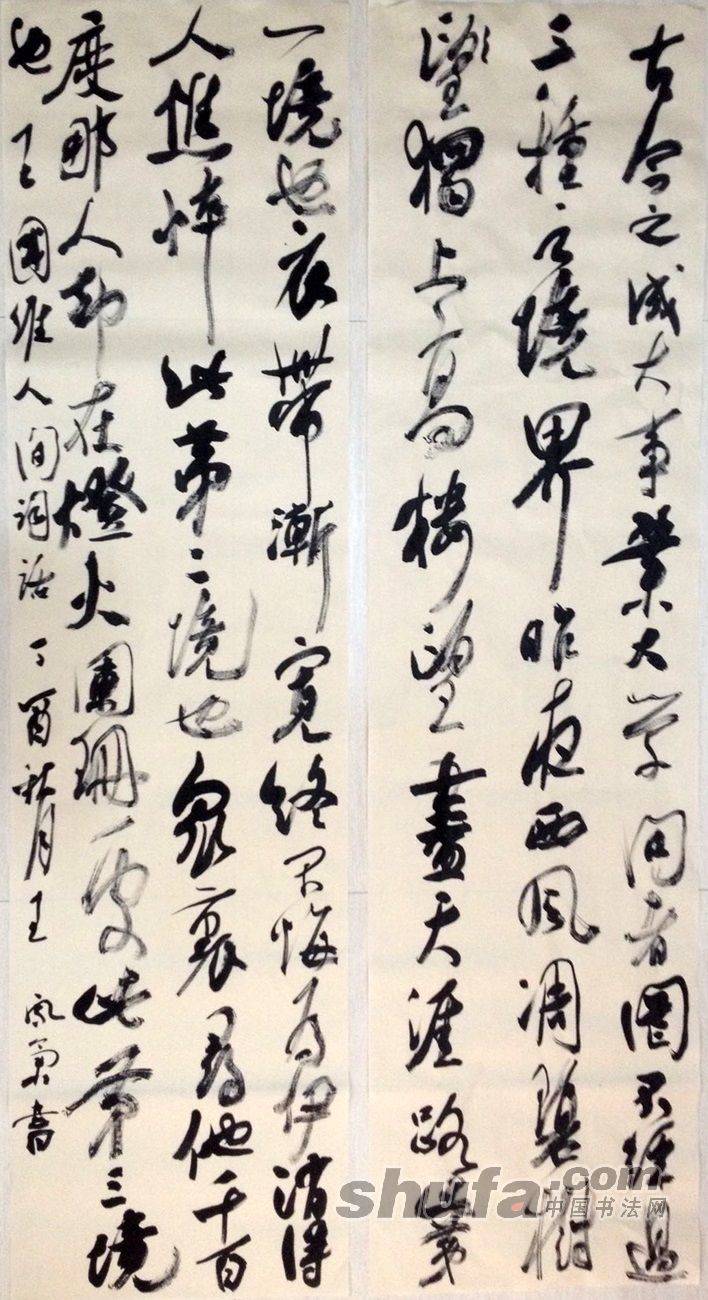 古今之成大事業大學問者罔不經過
三種之境界昨夜西風凋碧樹
望獨上高樓望盡天涯路此第
一境也衣帶漸寬終不悔為伊消得
人憔悴此第二境也眾裏尋他千百
度那人却在燈火闌珊處此第三境
也王國維人間詞話丁酉秋月王書
shufa.com
中国书法网